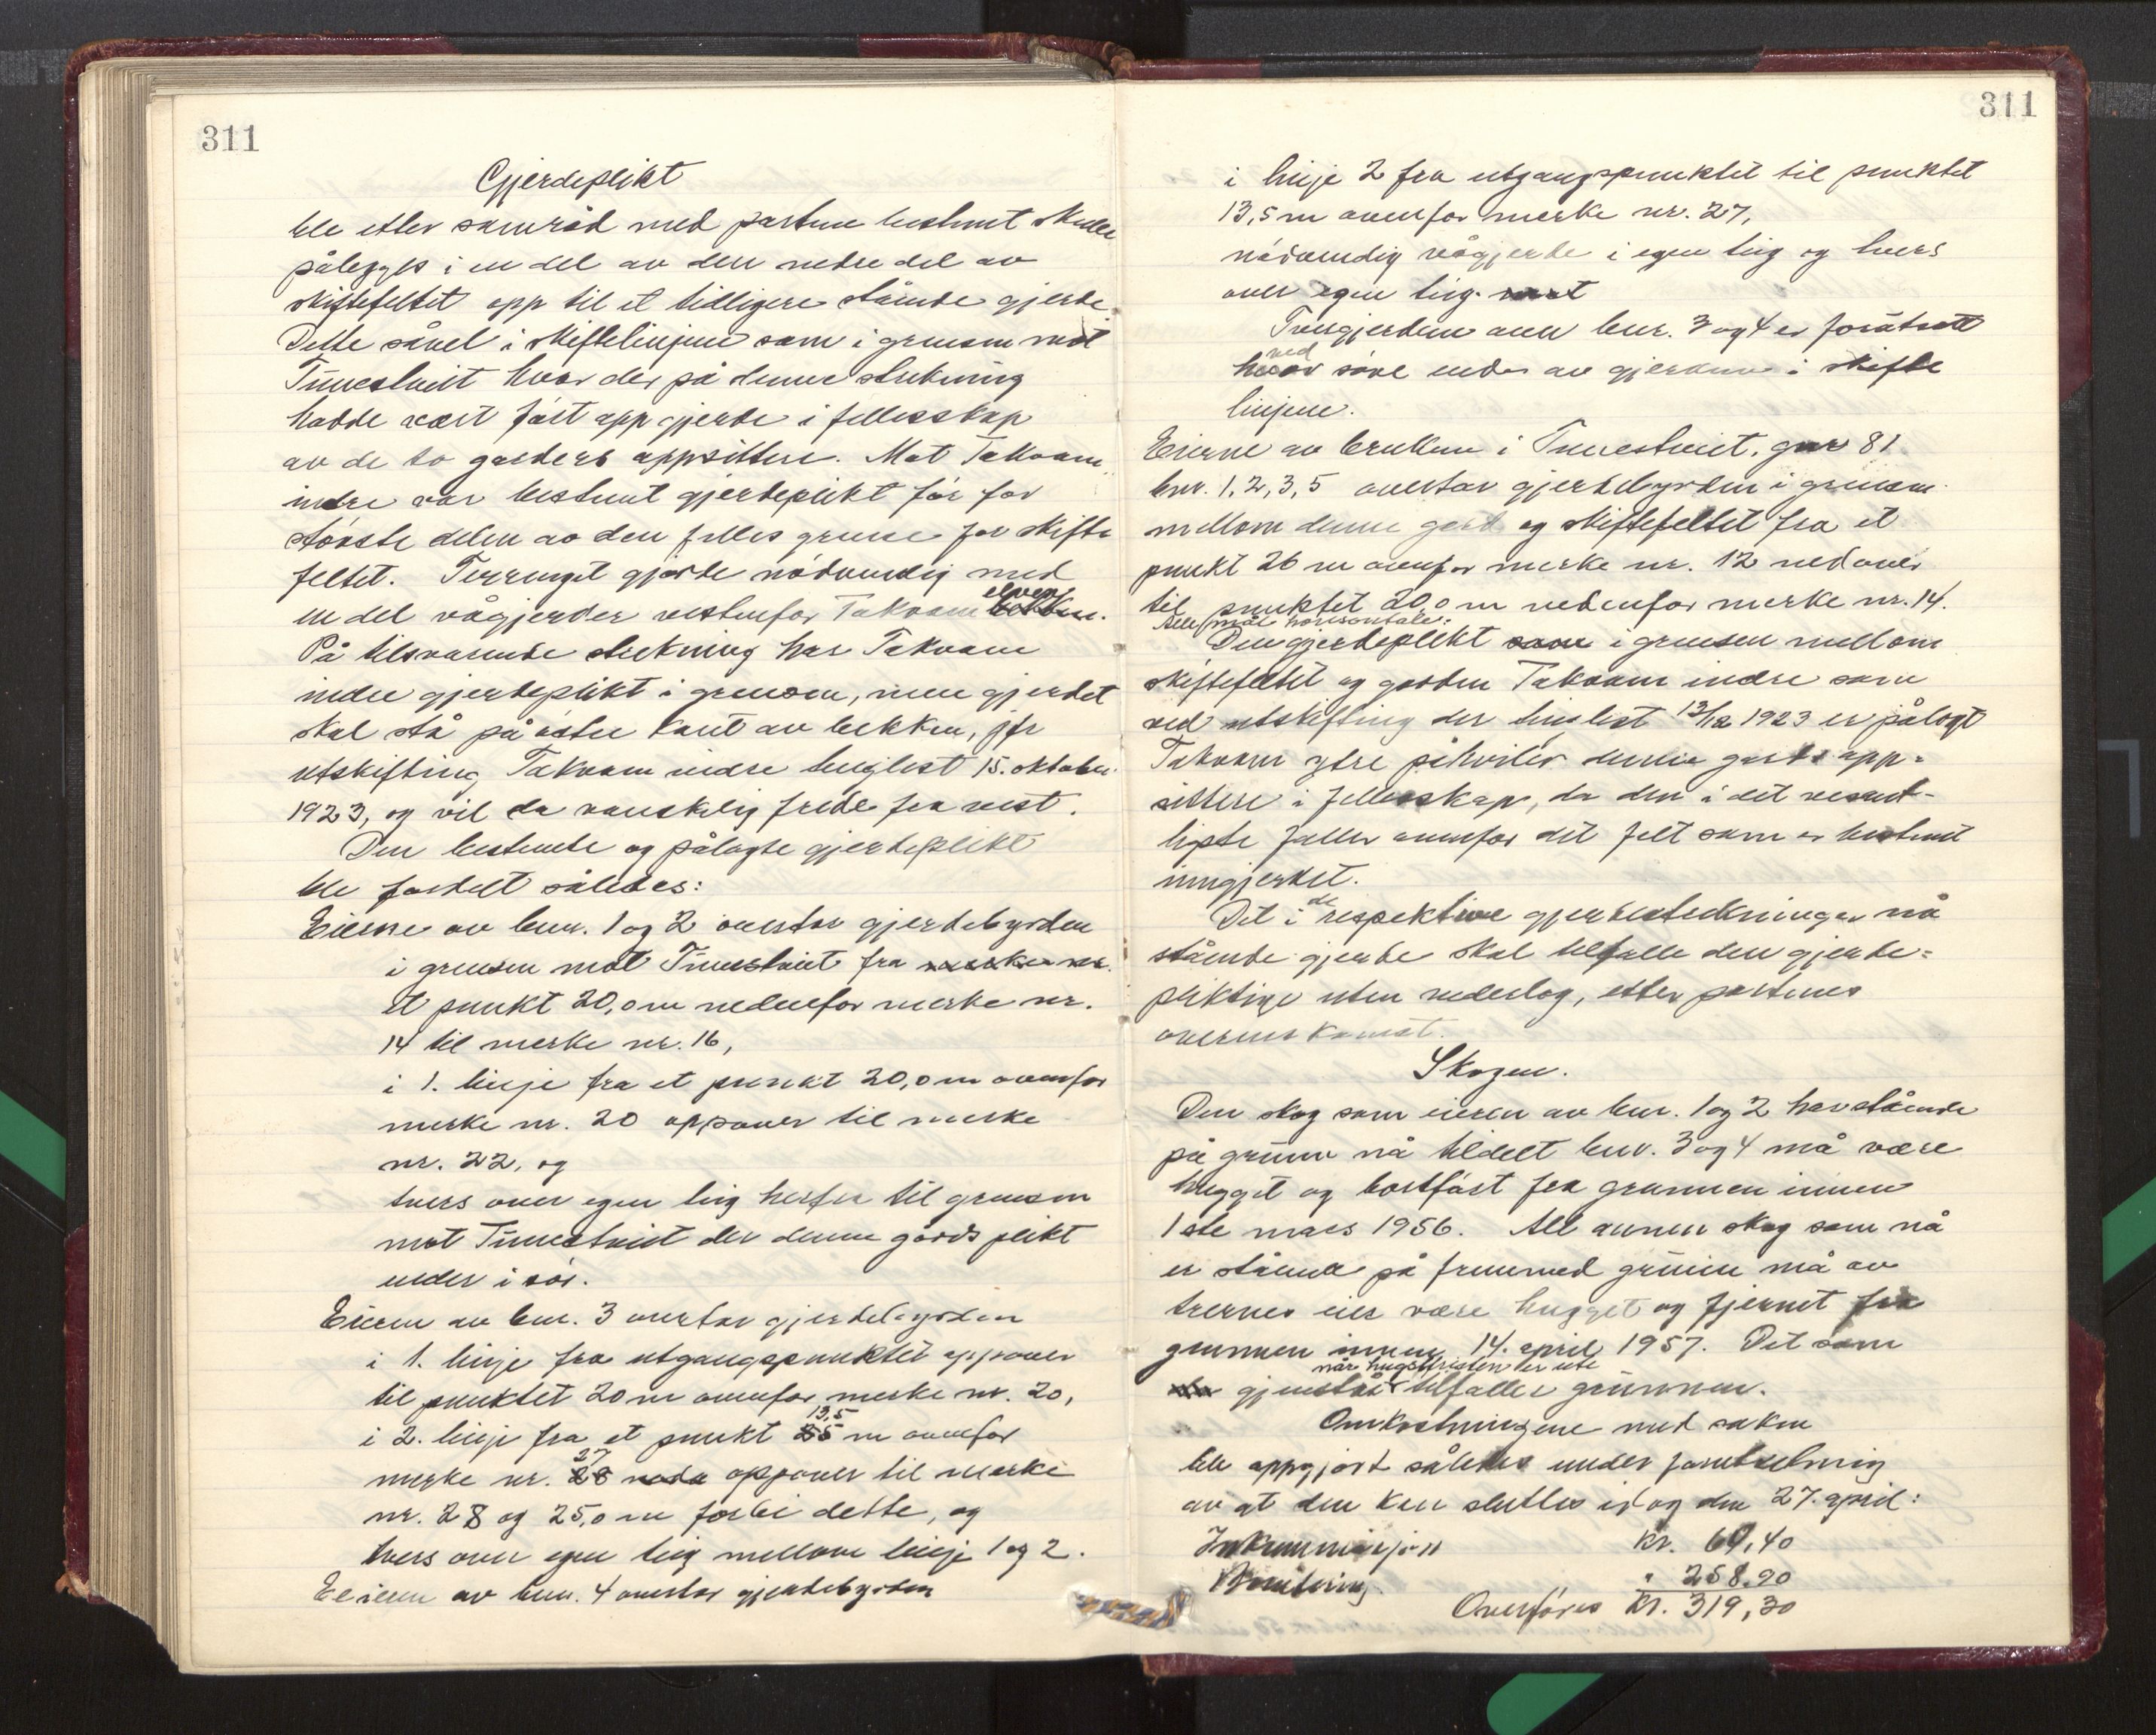 311
Gjerdeplikt
ble etter samråd med partene bestemt skulle
pålegges i en del av den nedre del av
skiftefeltet opp til et tidligere stående gjerde.
Dette såvel i skiftelinjene som i grensen mot
Tunestveit hvor der på denne strekning
hadde vært ført opp gjerde i fellesskap
av de to garders oppsittere. Mot Takvam
indre var bestemt gjerdeplikt før for
største delen av den felles grense for skifte
feltet. Terrenget gjorde nødvendig med
en del vågjerder vestenfor Takvam elven.
På tilsvarende strekning har Takvam
indre gjerdeplikt i grensen, men gjerdet
skal stå på østre kant av bekken, jfr
utskifting Takvam indre tinglest 15. oktober
1923, og vil da vanskelig frede fra vest.
Den bestemte og pålagte gjerdeplikt
ble fordelt således:
Eierne av bnr. 1 og 2 overtar gjerdebyrden
i grensen mot Tunestveit fra merke nr.
et punkt 20,0 m nedenfor merke nr.
14 til merke nr. 16,
i 1. linje fra et punkt 20,0 m ovenfor
merke nr. 20 oppover til merke
nr. 22, og
tvers over egen teig herfra til grensen
mot Tunestveit der denne gards plikt
ender i sør.
Eieren av bnr. 3 overtar gjerdebyrden
i 1. linje fra utgangspunktet oppover
til punktet 20 m ovenfor merke nr. 20,
i 2. linje fra et punkt 13,5 m ovenfor
merke nr. 27 oppover til merke
nr. 28 og 25,0 m forbi dette, og
tvers over egen teig mellom linje 1 og 2.
Eieren av bnr. 4 overtar gjerdebyrden
311
i linje 2 fra utgangspunktet til punktet
13,5 m ovenfor merke nr. 27,
nødvendig vågjerde i egen teig og tvers
over egen teig.
Tvergjerdene over bnr. 3 og 4 er forutsatt
ved søre ender av gjerdene i skifte
linjene.
Eierne av brukene i Tunestveit, gnr 81
bnr. 1, 2, 3, 5 overtar gjerdebyrden i grensen
mellom denne gard og skiftefeltet fra et
punkt 26 m ovenfor merke nr. 12 nedover
til punktet 20,0 m nedenfor merke nr. 14.
Alle mål horisontale.
Den gjerdeplikt i grensen mellom
skiftefeltet og garden Takvam indre som
ved utskifting der tinglest 13/12 1923 er pålagt
Takvam ytre påhviler denne gards opp-
sittere i fellesskap, da den i det vesent-
ligste faller ovenfor det felt som er bestemt
inngjerdet.
Det i de respektive gjerdestrekninger nå
stående gjerde skal tilfalle den gjerde-
pliktige uten vederlag, etter partenes
overenskomst.
Skogen.
Den skog som eieren av bnr. 1 og 2 har stående
på grunn nå tildelt bnr. 3 og 4 må være
hugget og bortført fra grunnen innen
1ste mars 1956. All annen skog som nå
er stående på fremmed grunn må av
trernes eier være hugget og fjernet fra
grunnen innen 14. april 1957. Det som
når hugstfristen er ute
gjenstår tilfaller grunnen.
Omkostningene med saken
ble oppgjort således under forutsetning
av at den kan sluttes i dag den 27. april:
Innkommisjon Kr. 60,40
" 258.90
Overføres Kr. 319,30